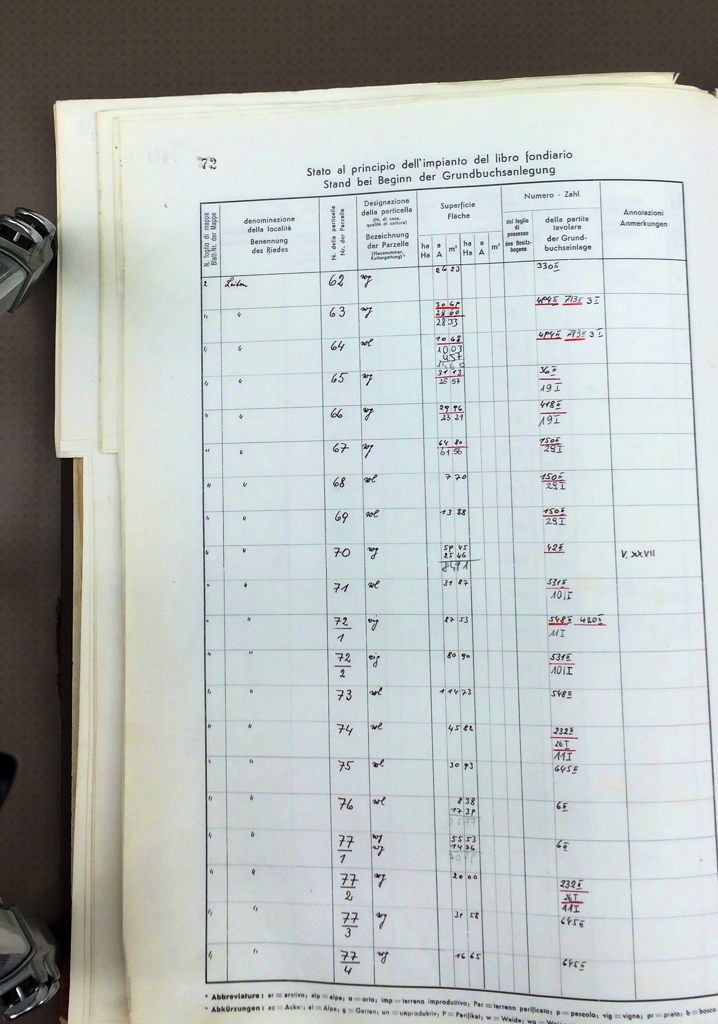 72
Stato al principio dell'impianto del libro fondiario
Stand bei Beginn der Grundbuchsanlegung
N. foglio di mappa
Blatt-Nr. der Mappe
denominazione
della località
Benennung
des Riedes
N. della particella
Nr. der Parzelle
Designazione
della particella
(N. di casa,
qualità di coltura)
Bezeichnung
der Parzelle
(Hausnummer,
Kulturgattung)*
Superficie
Fläche
ha a m² ha a m²
Ha A Ha A
Numero - Zahl
del foglio
di
possesso
des Besitz-
bogens
della partita
tavolare
der Grund-
buchseinlage
Annotazioni
Anmerkungen
2 62 wg 26 23 330 II
" " 63 wg 30 69
28 60
28 33
3 I
" " 64 wl 10 68
10 03
3 I
" " 65 wg 31 13 36 II
19 I
" " 66 wg 29 96 418 II
23 21 19 I
" " 67 wg 64 80 150 II
61 56 29 I
" " 68 wl 7 70 150 II
29 I
" " 69 wl 13 88 150 II
29 I
" " 70 wg 59 45 42 II V. XXVII
25 46
84 91
" " 71 wl 31 87 531 II
10 I
" " 72/1 vig 87 53 548 II 420 II
11 I
" " 72/2 vig 80 90 531 II
10 I
" " 73 wl 1 14 73 548 II
" " 74 wl 45 82 232 II
26 I
11 I
" " 75 wl 30 93 645 II
" " 76 wl 8 38 6 II
17 39
" " 77/1 wg 55 53 6 II
wg 14 76
" " 77/2 wg 20 00 232 II
26 I
11 I
" " 77/3 wg 31 58 645 II
" " 77/4 wg 16 65 645 II
* Abbreviature: ar = arativo, alp = alpe, o = orto, imp = terreno improduttivo, Per = terreno perificato, p = pascolo, vig = vigna, pr = prato, b = bosco
* Abkürzungen: ac = Acker, al = Alpe, g = Garten, un = unproduktiv, P = Perifikat, w = Weide, wg =